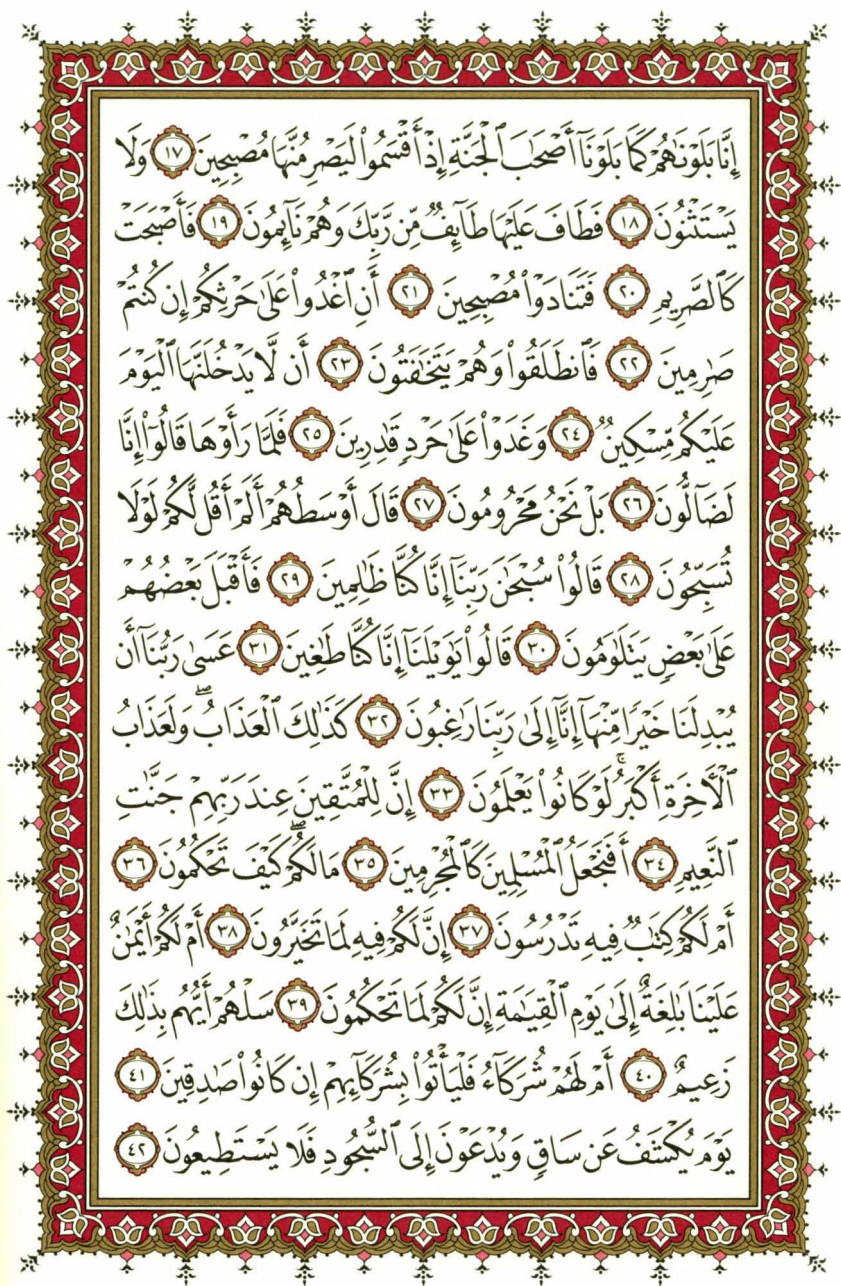 إِنَّا بَلَوْنَٰهُمْ كَمَا بَلَوْنَآ أَصْحَٰبَ ٱلْجَنَّةِ إِذْ أَقْسَمُوا۟ لَيَصْرِمُنَّهَا مُصْبِحِينَ ١٧ وَلَا
يَسْتَثْنُونَ ١٨ فَطَافَ عَلَيْهَا طَآئِفٌ مِّن رَّبِّكَ وَهُمْ نَآئِمُونَ ١٩ فَأَصْبَحَتْ
كَٱلصَّرِيمِ ٢٠ فَتَنَادَوْا۟ مُصْبِحِينَ ٢١ أَنِ ٱغْدُوا۟ عَلَىٰ حَرْثِكُمْ إِن كُنتُمْ
صَٰرِمِينَ ٢٢ فَٱنطَلَقُوا۟ وَهُمْ يَتَخَٰفَتُونَ ٢٣ أَن لَّا يَدْخُلَنَّهَا ٱلْيَوْمَ
عَلَيْكُم مِّسْكِينٌ ٢٤ وَغَدَوْا۟ عَلَىٰ حَرْدٍ قَٰدِرِينَ ٢٥ فَلَمَّا رَأَوْهَا قَالُوٓا۟ إِنَّا
لَضَآلُّونَ ٢٦ بَلْ نَحْنُ مَحْرُومُونَ ٢٧ قَالَ أَوْسَطُهُمْ أَلَمْ أَقُل لَّكُمْ لَوْلَا
تُسَبِّحُونَ ٢٨ قَالُوا۟ سُبْحَٰنَ رَبِّنَآ إِنَّا كُنَّا ظَٰلِمِينَ ٢٩ فَأَقْبَلَ بَعْضُهُمْ
عَلَىٰ بَعْضٍ يَتَلَٰوَمُونَ ٣٠ قَالُوا۟ يَٰوَيْلَنَآ إِنَّا كُنَّا طَٰغِينَ ٣١ عَسَىٰ رَبُّنَآ أَن
يُبْدِلَنَا خَيْرًا مِّنْهَآ إِنَّآ إِلَىٰ رَبِّنَا رَٰغِبُونَ ٣٢ كَذَٰلِكَ ٱلْعَذَابُ ۖ وَلَعَذَابُ
ٱلْأَخِرَةِ أَكْبَرُ ۚ لَوْ كَانُوا۟ يَعْلَمُونَ ٣٣ إِنَّ لِلْمُتَّقِينَ عِندَ رَبِّهِمْ جَنَّٰتِ
ٱلنَّعِيمِ ٣٤ أَفَنَجْعَلُ ٱلْمُسْلِمِينَ كَٱلْمُجْرِمِينَ ٣٥ مَا لَكُمْ ۖ كَيْفَ تَحْكُمُونَ ٣٦
أَمْ لَكُمْ كِتَٰبٌ فِيهِ تَدْرُسُونَ ٣٧ إِنَّ لَكُمْ فِيهِ لَمَا تَخَيَّرُونَ ٣٨ أَمْ لَكُمْ أَيْمَٰنٌ
عَلَيْنَا بَٰلِغَةٌ إِلَىٰ يَوْمِ ٱلْقِيَٰمَةِ إِنَّ لَكُمْ لَمَا تَحْكُمُونَ ٣٩ سَلْهُمْ أَيُّهُم بِذَٰلِكَ
زَعِيمٌ ٤٠ أَمْ لَهُمْ شُرَكَآءُ فَلْيَأْتُوا۟ بِشُرَكَآئِهِمْ إِن كَانُوا۟ صَٰدِقِينَ ٤١
يَوْمَ يُكْشَفُ عَن سَاقٍ وَيُدْعَوْنَ إِلَى ٱلسُّجُودِ فَلَا يَسْتَطِيعُونَ ٤٢